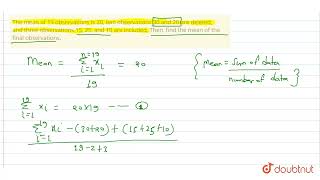 The mean of 19 observations is 20, two observations 30 and 20 are deleted,
and three observations, 15, 25, and 10 are included. Then, find the mean of the
final observations.
Mean = n=19 Σ i=1 xi / 19 = 20 { Mean = sum of data / number of data }
19 Σ i=1 xi = 20×19 —— ①
19 Σ i=1 xi - (30+20) + (15+25+10) / 19-2+3
doubtnut